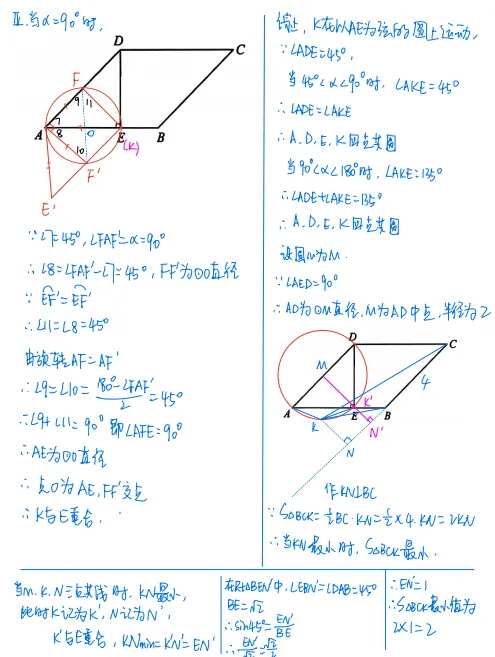 II.当α=90°时,
D
C
F
9
11
7
A
8
O
E
B
(K)
10
F'
E'
∵∠7=45°,∠FAF'=α=90°
∴∠8=∠FAF'-∠7=45°,FF'为⊙O直径
∵EF'=EF'
∴∠11=∠8=45°
由旋转AF=AF'
∴∠9=∠10=(180°-∠FAF')/2=45°
∴∠9+∠11=90° 即∠AFE=90°
∴AE为⊙O直径
∴点O为AE,FF'交点
∴K与E重合.
综上,K在以AE为弦的圆上运动,
∵∠ADE=45°,
当45°<α<90°时,∠AKE=45°
∴∠ADE=∠AKE
∴A、D、E、K四点共圆
当90°<α<180°时,∠AKE=135°
∴∠ADE+∠AKE=135°
∴A、D、E、K四点共圆
设圆心为M.
∵∠AED=90°
∴AD为⊙M直径,M为AD中点,半径为2
D
C
M
4
K'
A
E
B
K
N'
N
作KN⊥BC
∵S△BCK=½BC·KN=½×4·KN=2KN
∴当KN最小时,S△BCK最小.
当M、K、N三点共线时,KN最小,
此时K记为K',N记为N',
K'与E重合,KNmin=K'N'=EN'
在Rt△BEN'中,∠EBN'=∠DAB=45°
BE=√2
∴sin45°=EN'/BE
∴EN'/√2=√2/2
∴EN'=1
∴S△BCK最小值为
2×1=2